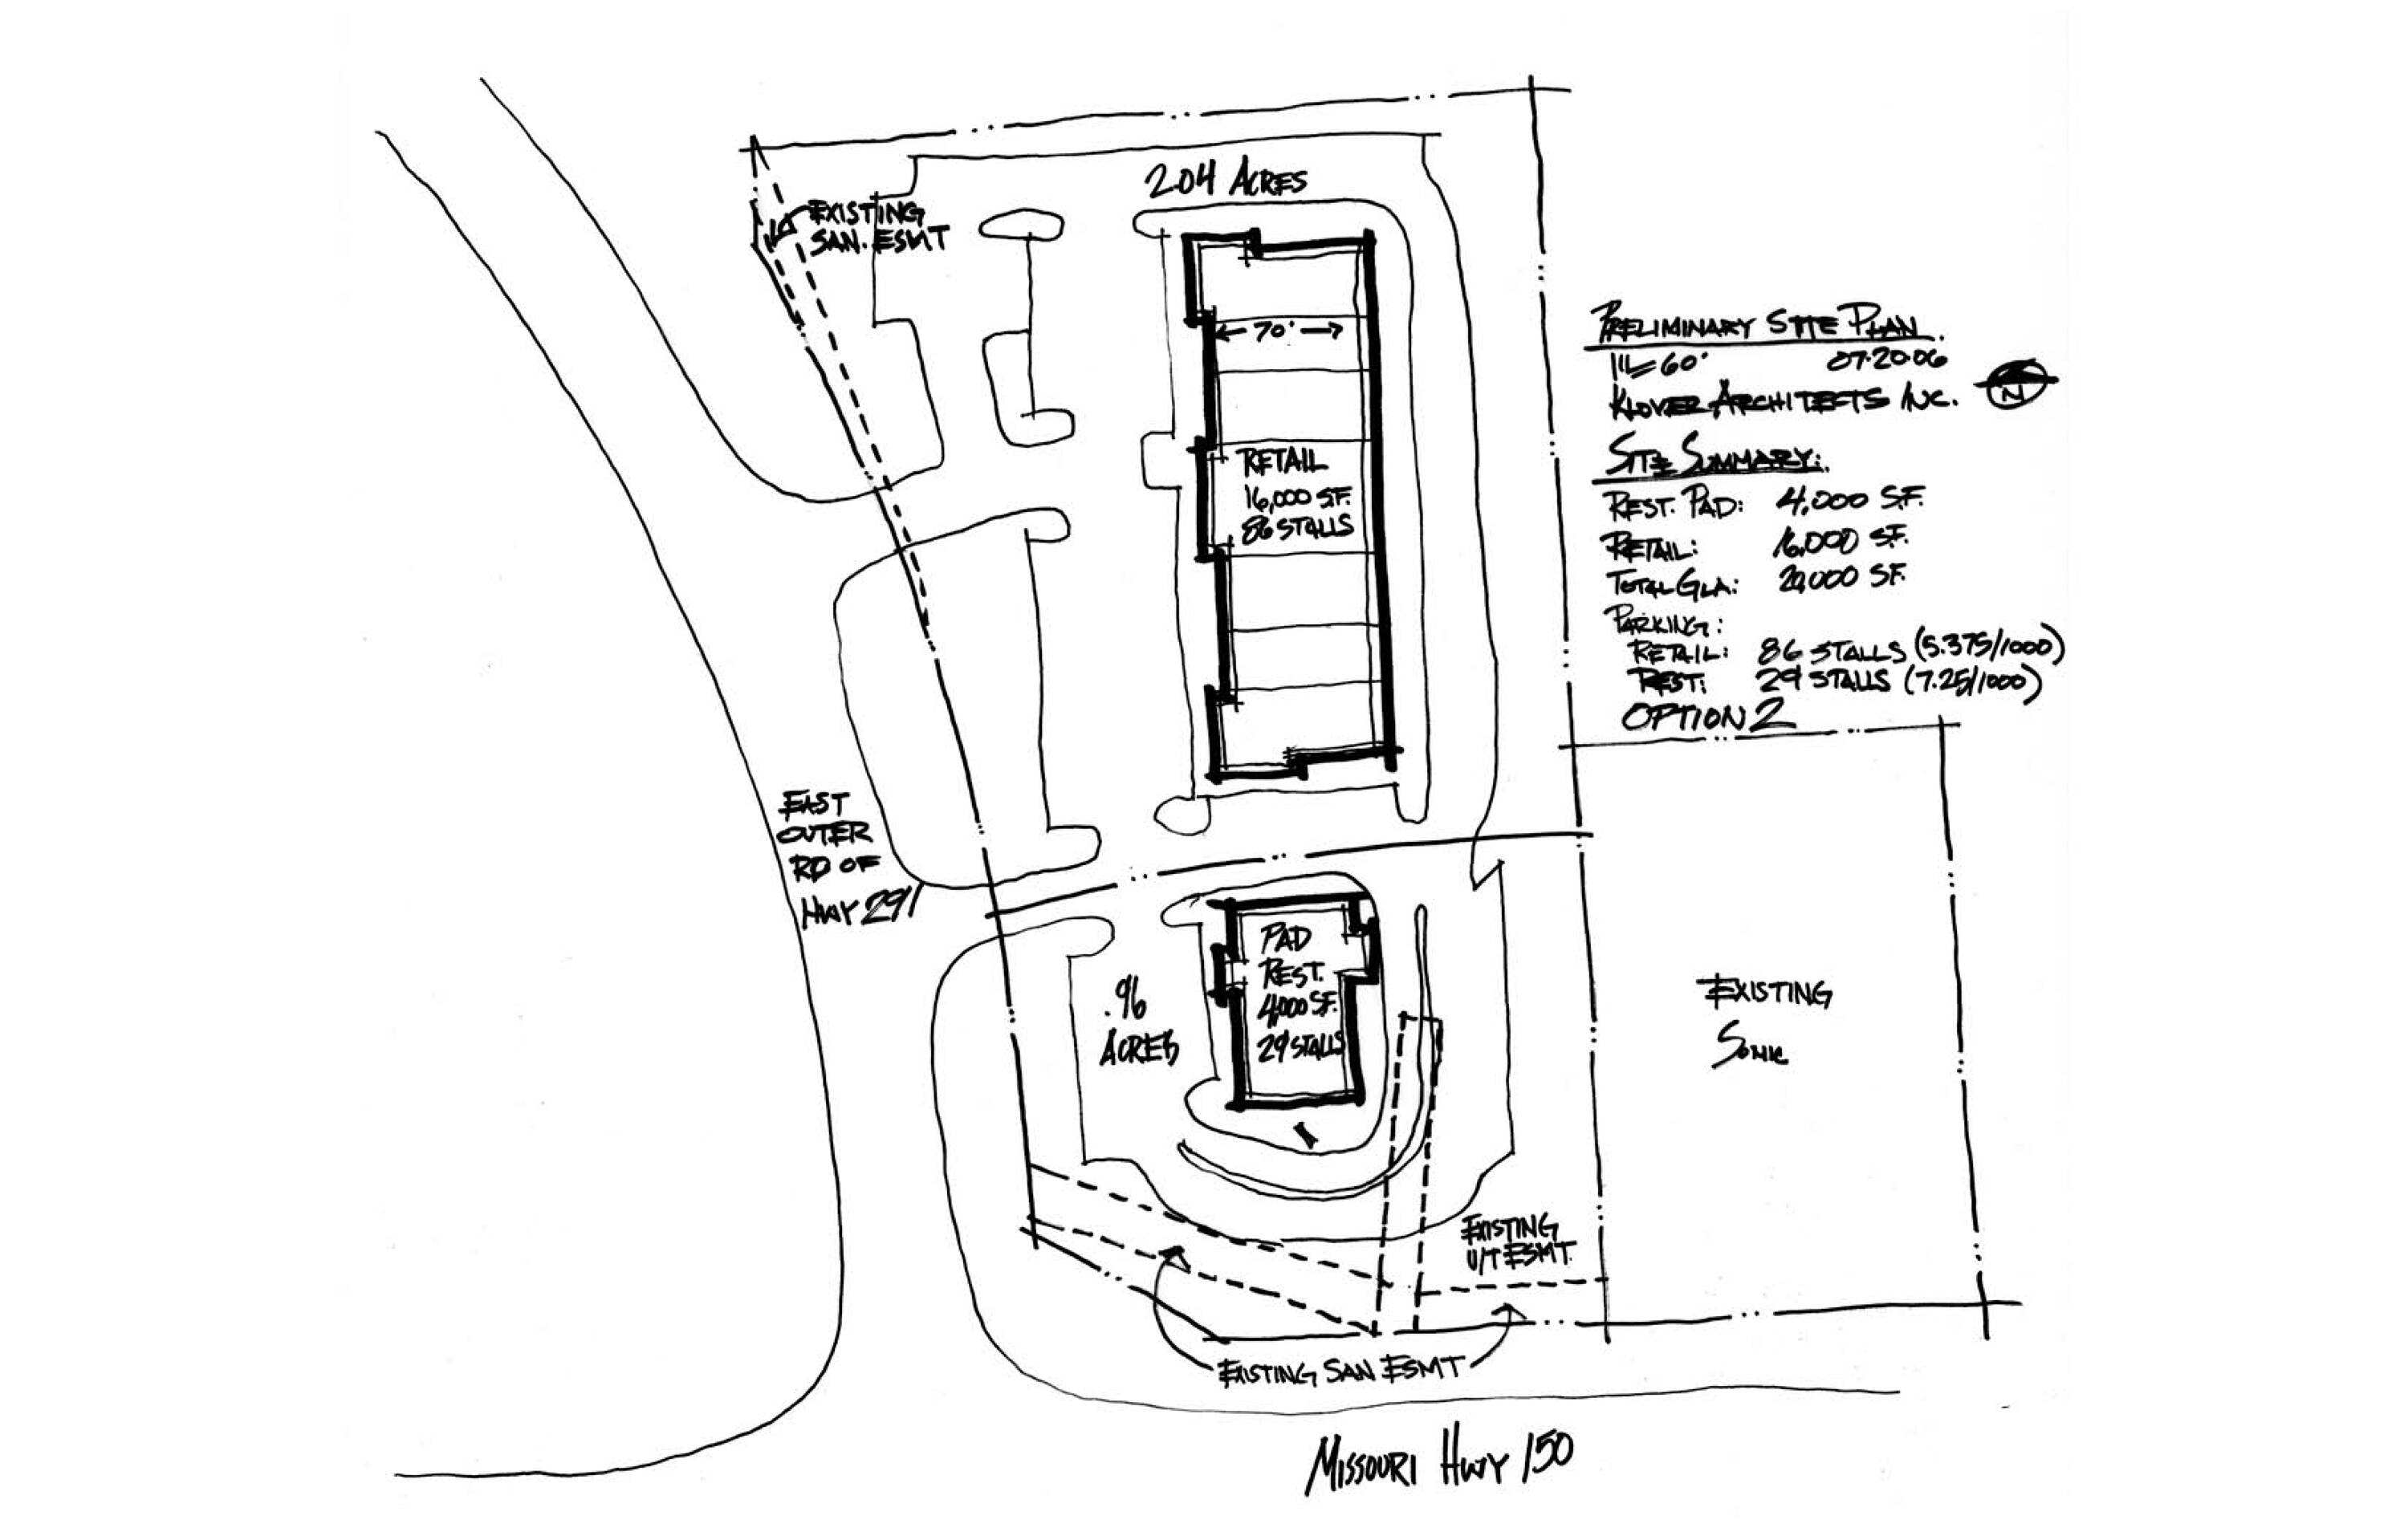 2.04 ACRES
EXISTING
SAN. ESMT
← 70' →
RETAIL
16,000 S.F.
86 STALLS
PRELIMINARY SITE PLAN
1"=60' 07.20.06
KLOVER ARCHITECTS INC.
N
SITE SUMMARY:
REST. PAD: 4,000 S.F.
RETAIL: 16,000 S.F.
TOTAL GLA: 20,000 S.F.
PARKING:
RETAIL: 86 STALLS (5.375/1000)
REST: 29 STALLS (7.25/1000)
OPTION 2
EAST
OUTER
RD OF
HWY 291
PAD
REST.
4,000 S.F.
29 STALLS
.96
ACRES
EXISTING
SONIC
EXISTING
U/T ESMT.
EXISTING SAN ESMT
MISSOURI HWY 150